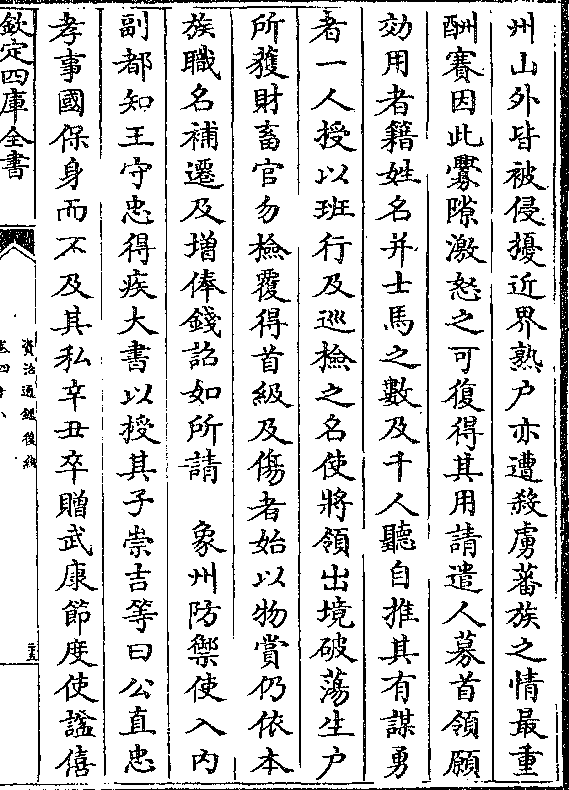 州山外皆被侵擾近界熟户亦遭殺虜蕃族之情最重
酬賽因此釁隙激怒之可復得其用請遣人募首領願
効用者籍姓名并士馬之數及千人聽自推其有謀勇
者一人授以班行及巡檢之名使將領出境破蕩生户
所獲財畜官勿檢覆得首級及傷者始以物賞仍依本
族職名補遷及增俸錢詔如所請　象州防禦使入内
副都知王守忠得疾大書以授其子崇吉等曰公直忠
孝事國保身而不及其私辛丑卒贈武康節度使諡僖
欽定四庫全書
資治通鑑後編